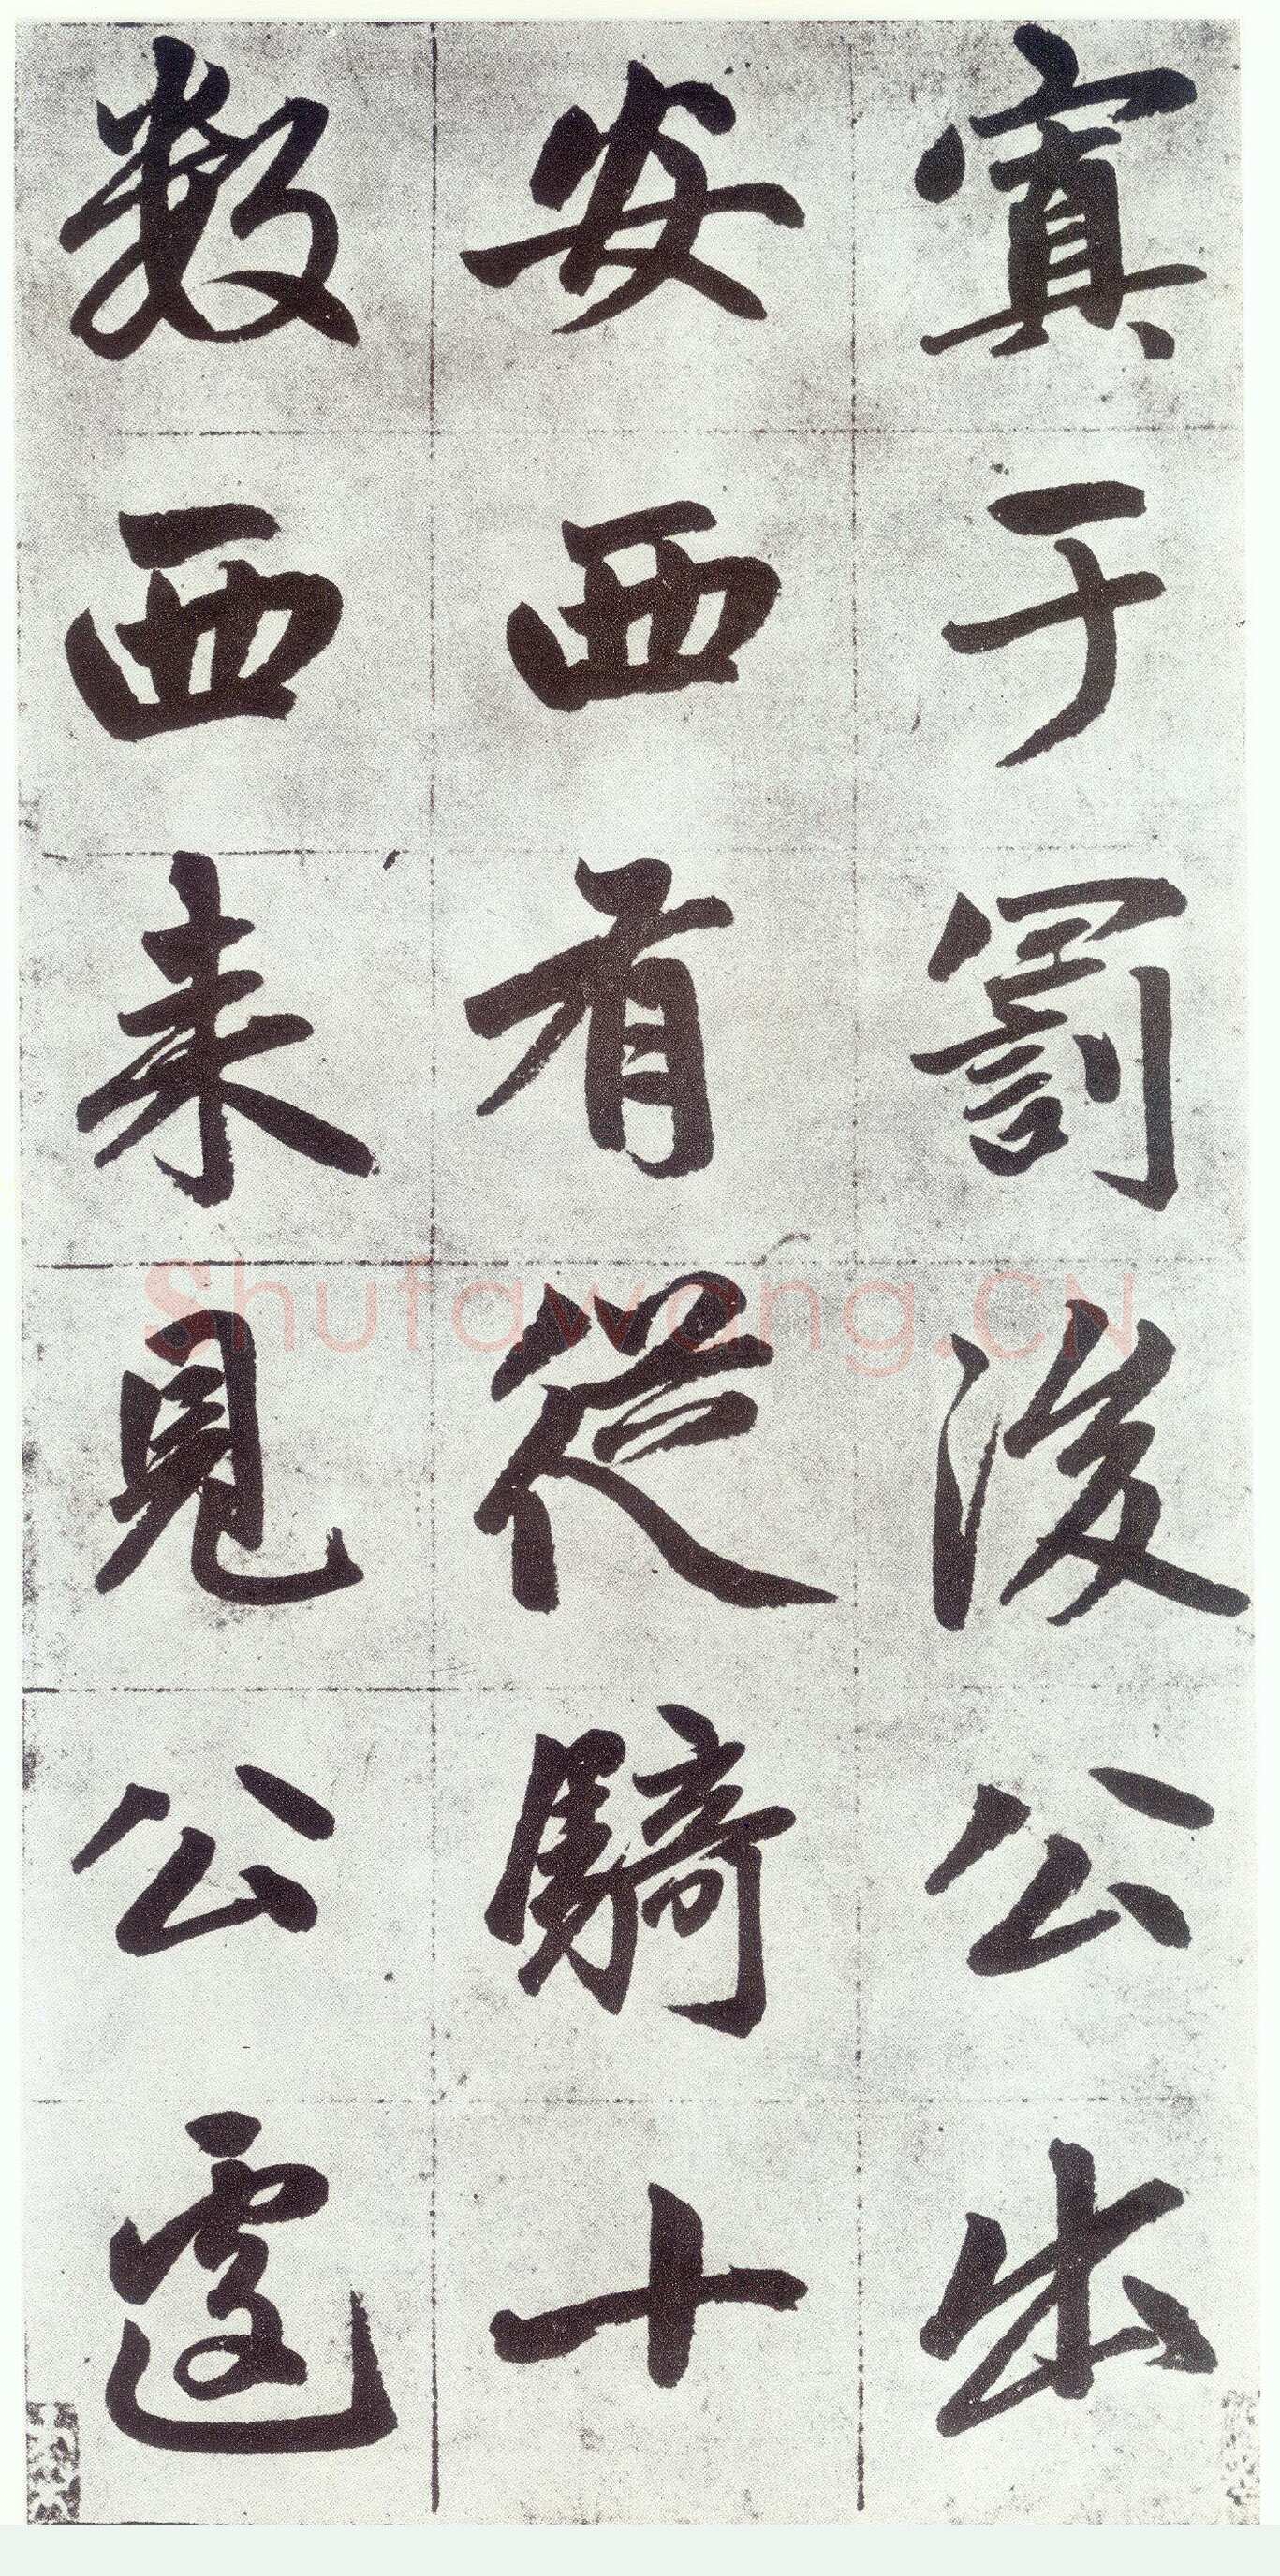 寘于罰後公出
安西有從騎十
數西来見公遽
Shufawang.CN